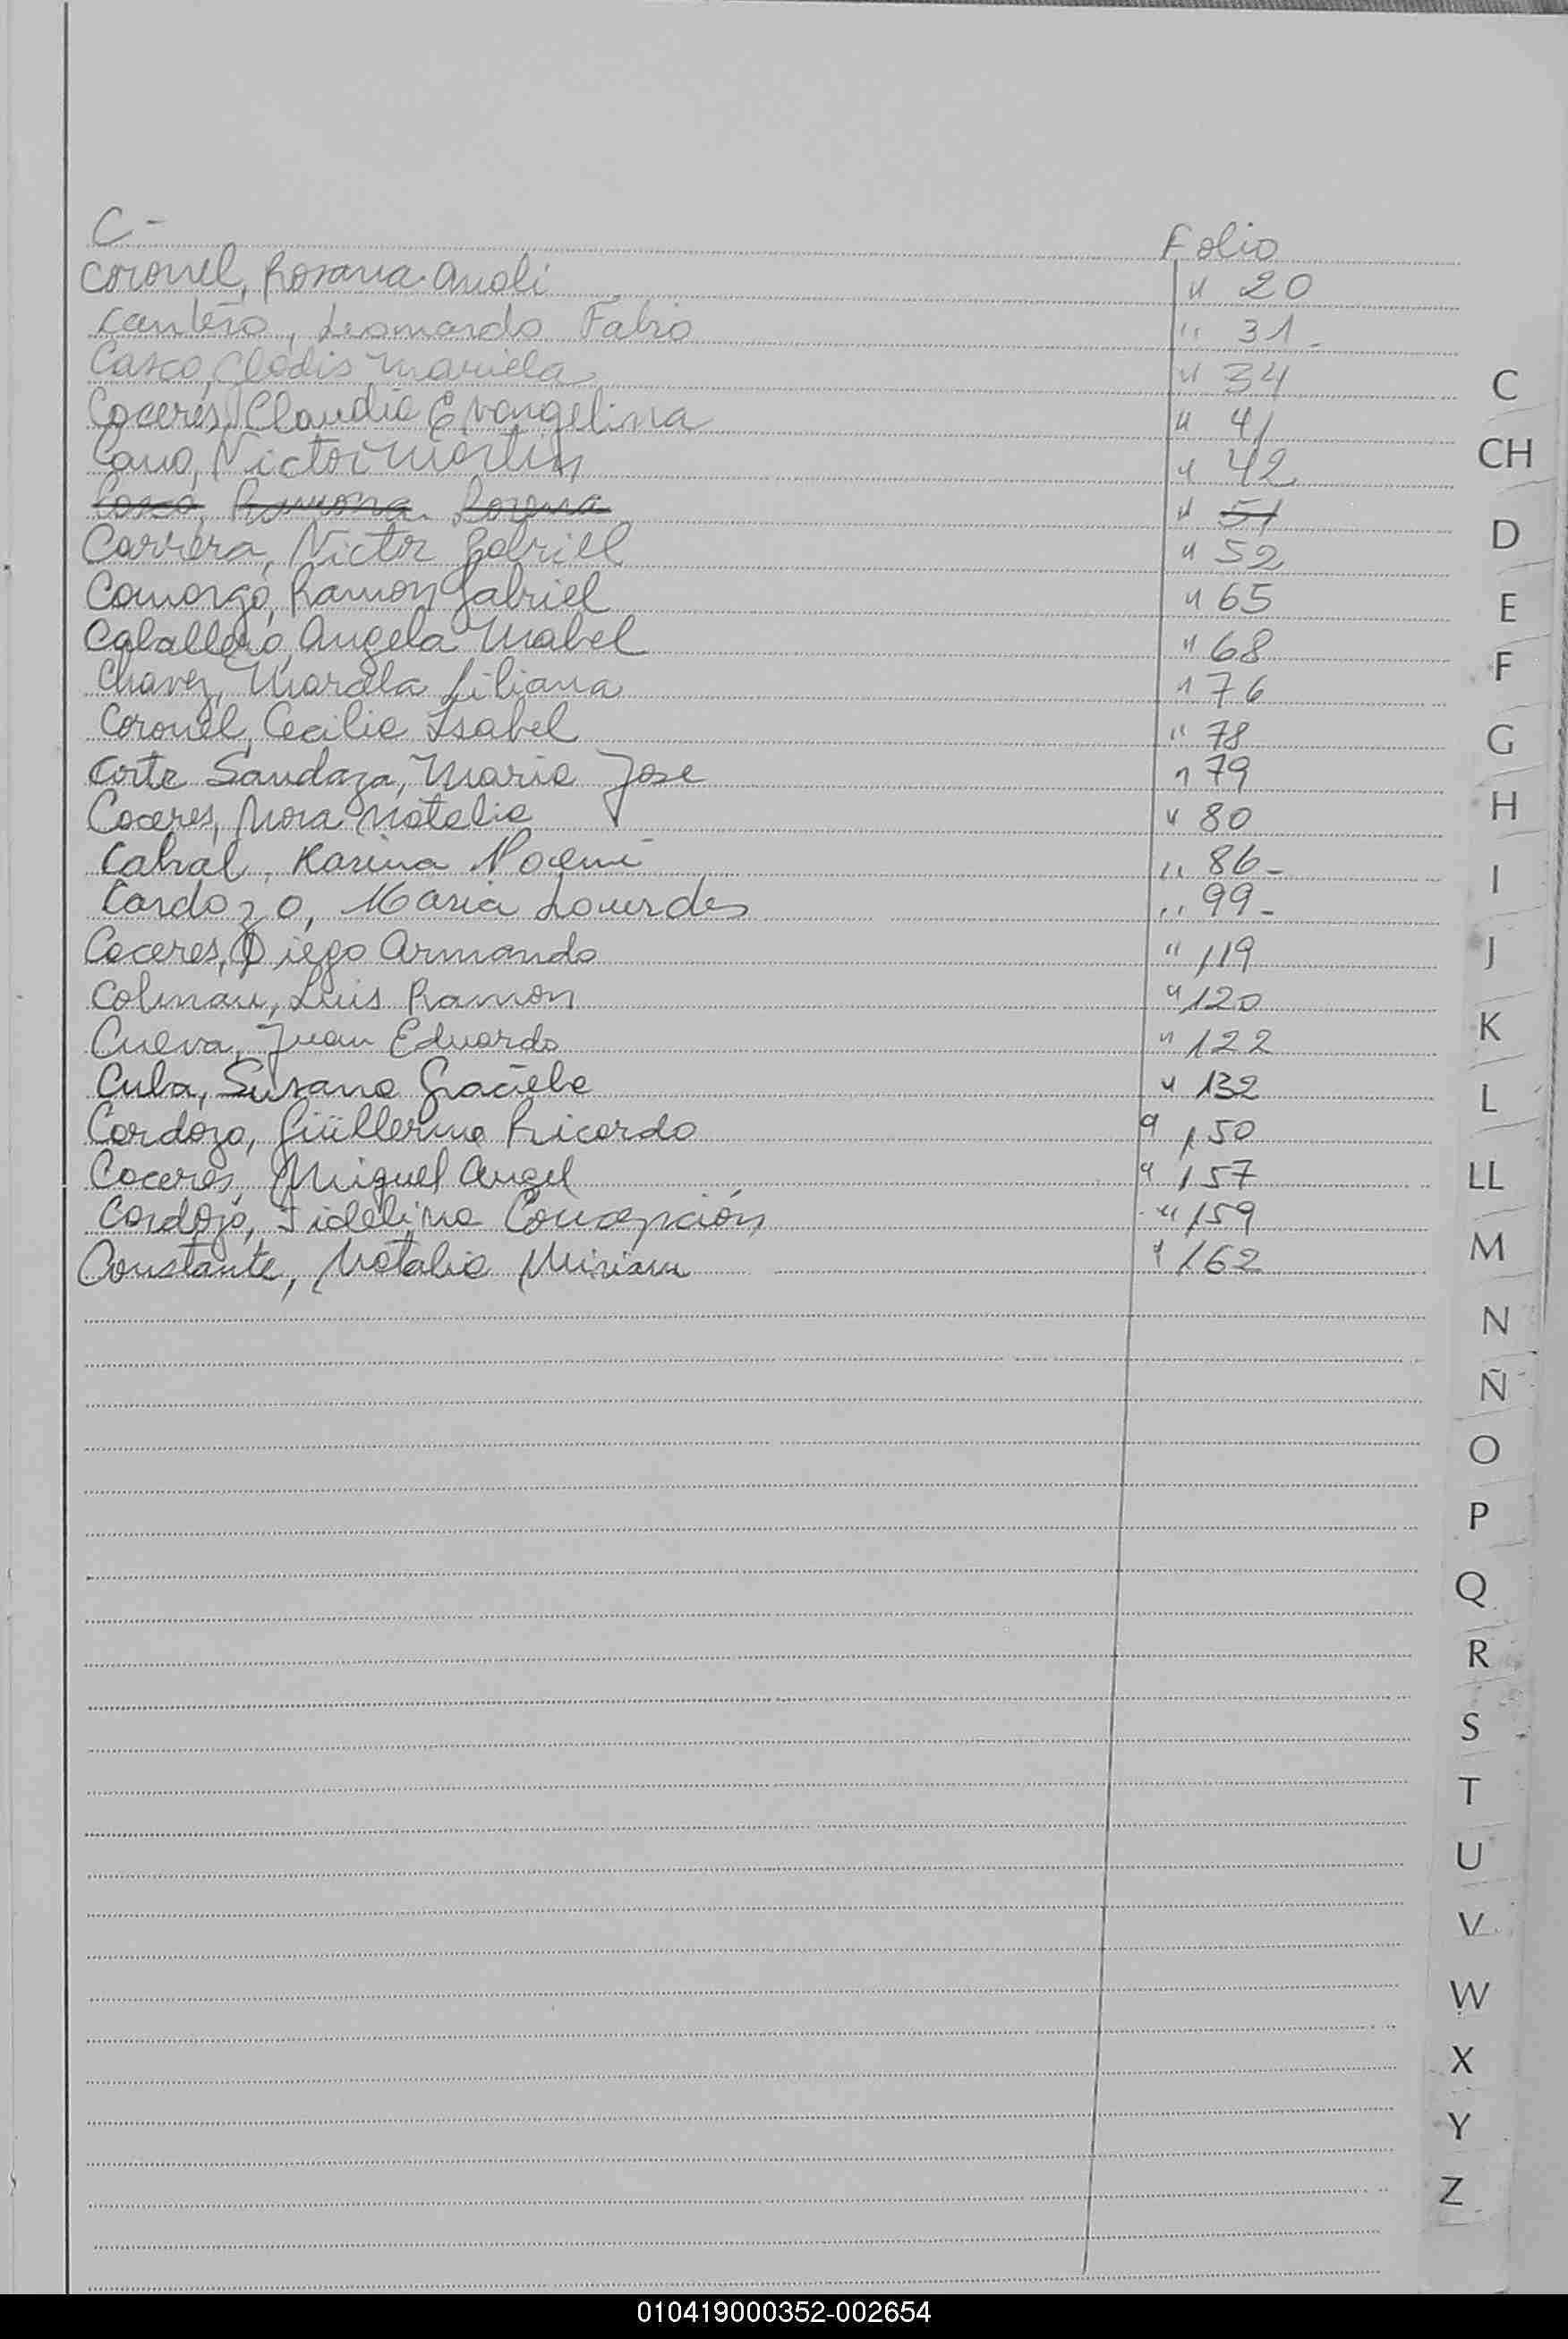 C-
Folio
Coronel, Rosana Anali " 20
Cantero, Leonardo Fabio " 31-
Casco, Clodis Mariela " 34
Caceres, Claudia Evangelina " 41
Cano, Victor Martin " 42
Casco, Ramona Lorena " 51
Carrera, Victor Gabriel " 52
Camargo, Ramon Gabriel " 65
Caballero, Angela Mabel " 68
Chavez, Mariela Liliana " 76
Coronel, Cecilia Isabel " 78
Corte Sandaza, Maria Jose " 79
Caceres, Nora Natalia " 80
Cabral, Karina Noemi " 86-
Cardozo, Maria Lourdes " 99-
Caceres, Diego Armando " 119
Colman, Luis Ramon " 120
Cueva, Juan Eduardo " 122
Cuba, Susana Graciela " 132
Cardozo, Guillermo Ricardo " 150
Caceres, Miguel Angel " 157
Cardozo, Fidelina Concepción " 159
Constante, Natalia Miriam " 162
C
CH
D
E
F
G
H
I
J
K
L
LL
M
N
Ñ
O
P
Q
R
S
T
U
V
W
X
Y
Z
010419000352-002654